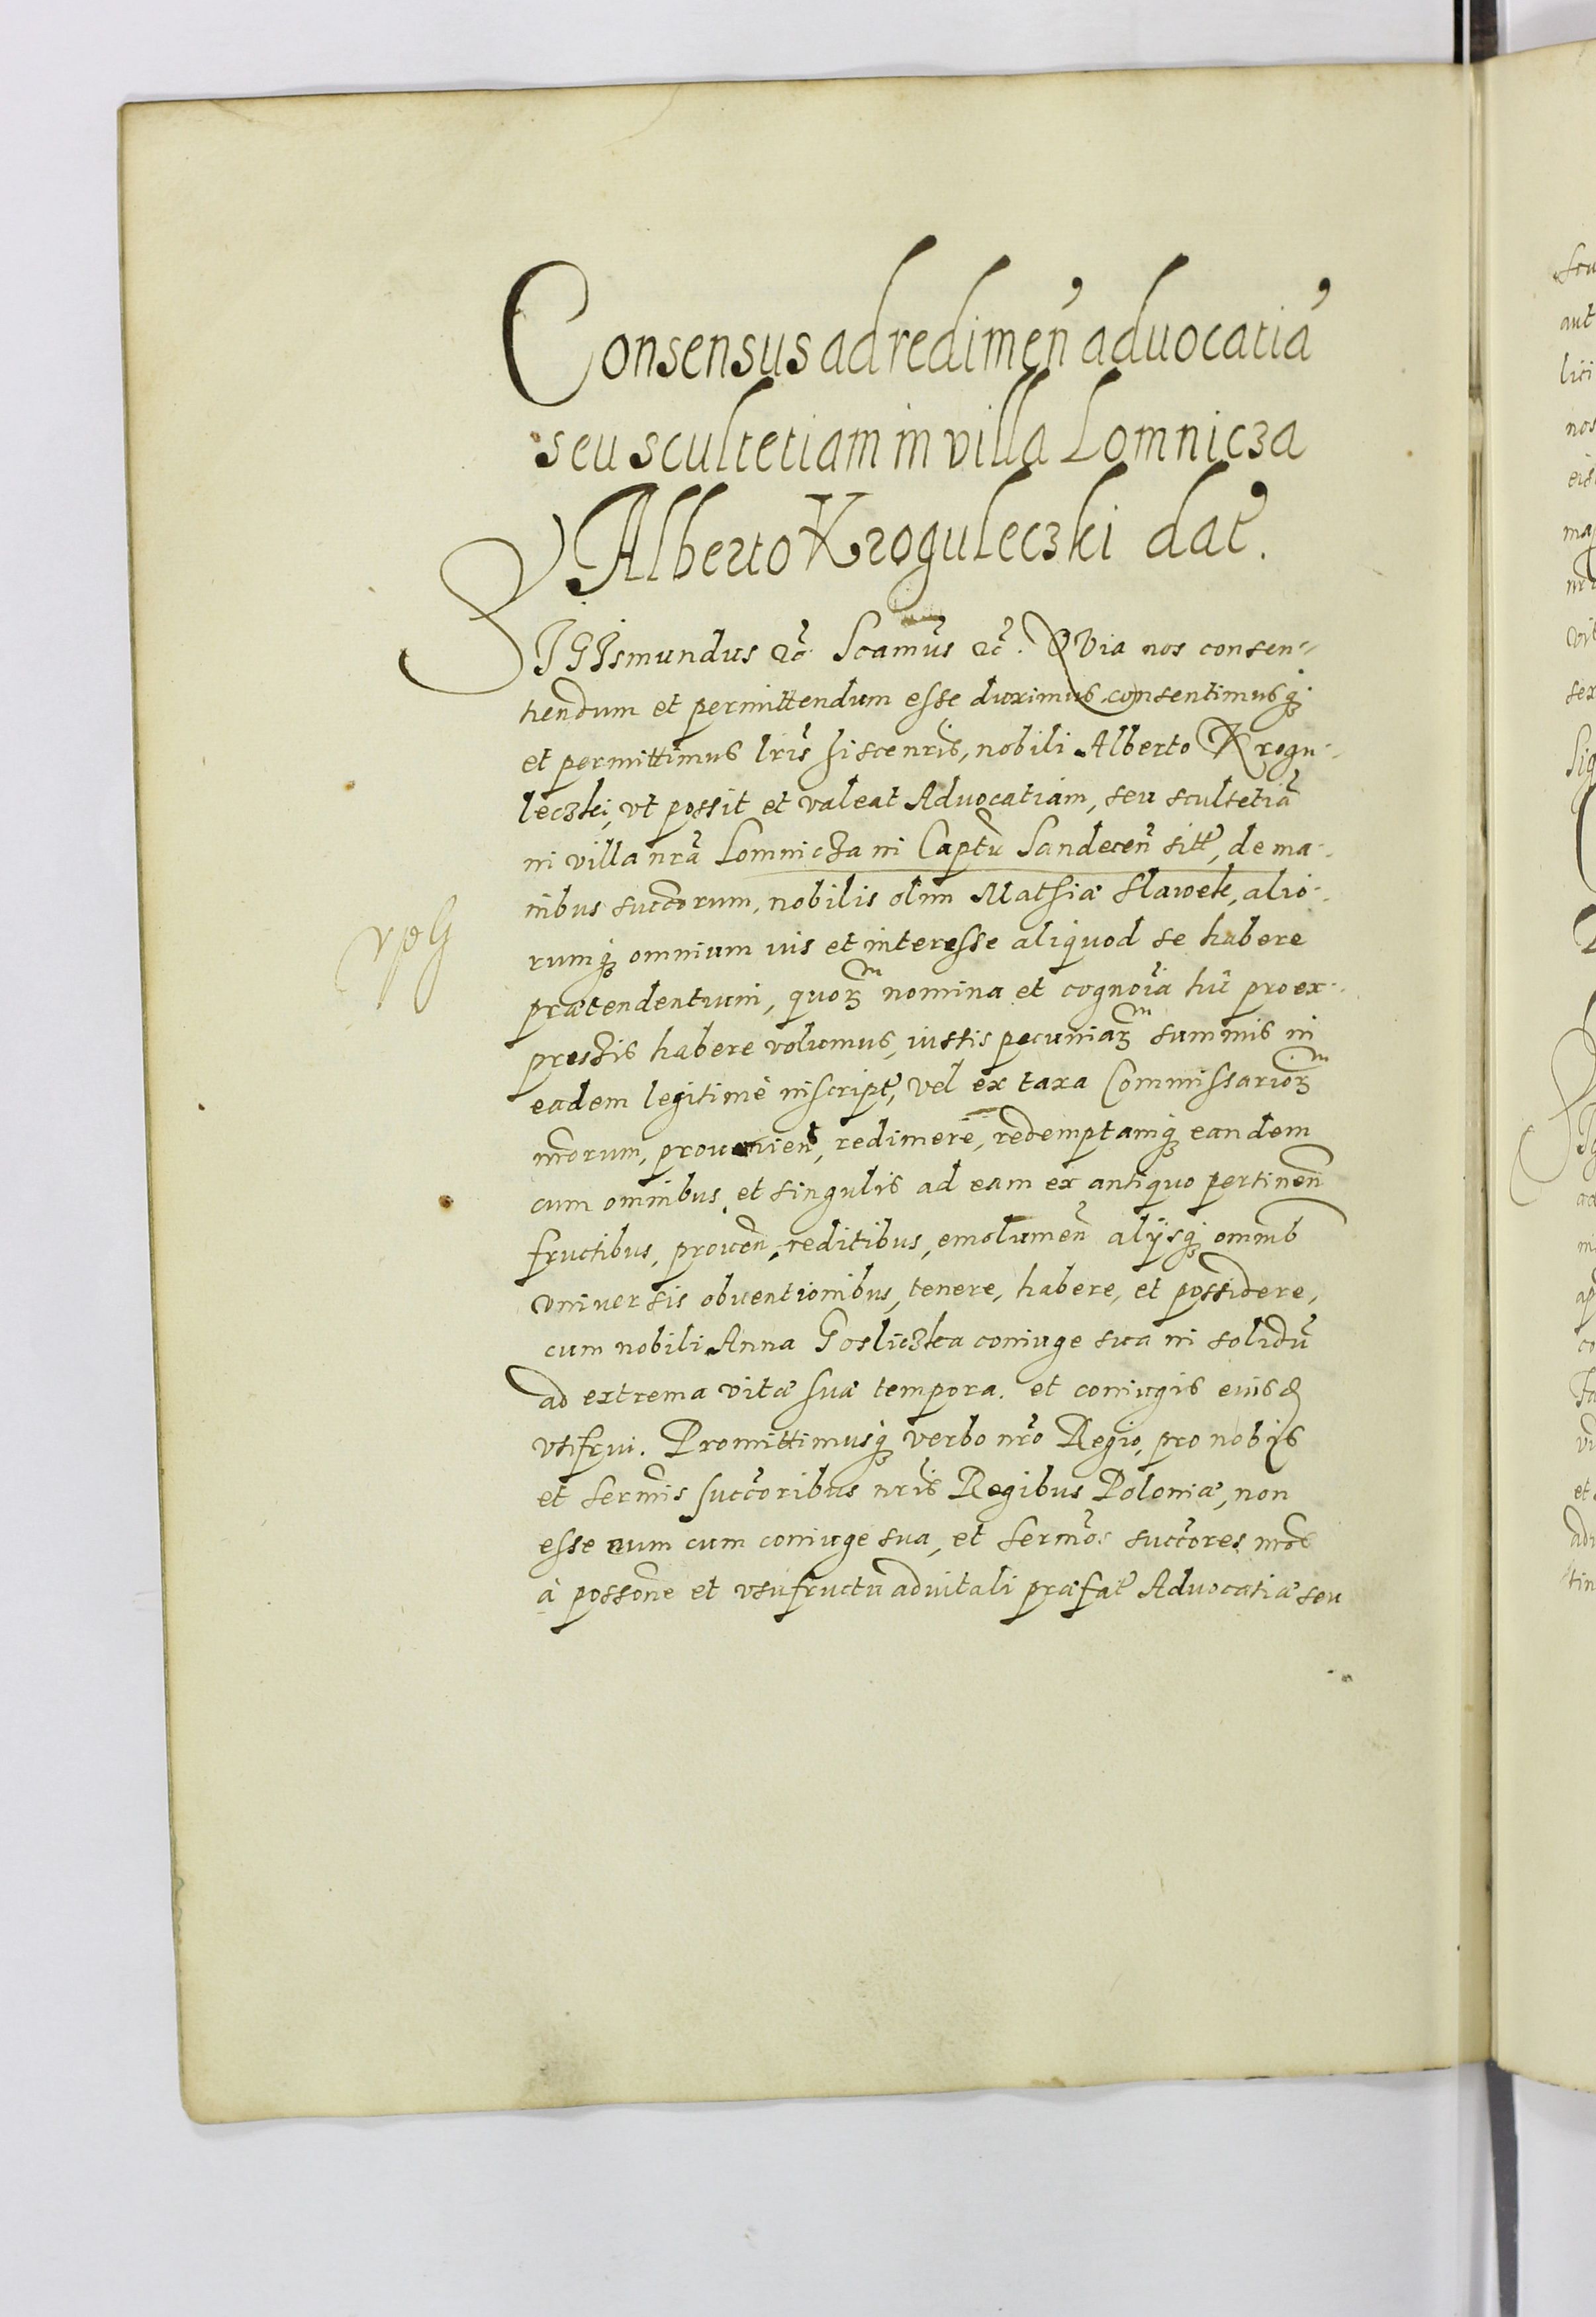 Consensus ad redimen̄ aduocatiā
seu scultetiam in villa Lomnicza
Alberto Kroguleczki dat̄.
SIGIsmundus &c̄. Scamūs &c̄. QVia nos consen-
tiendum et permittendum esse duximus consentimusq̄ꝫ
et permittimus lrīs hisce nrīs, nobili Alberto Krogu-
leczki, vt possit et valeat Aduocatiam, seu scultetiā
in villa nrā Lomnicza in Captū Sandecen̄ sitt̄, de ma-
nibus succ̄orum, nobilis olim Mathiæ Slawek, alio-
rumqꝫ omnium ius et interesse aliquod se habere
prætendentium, quoꝝm nomina et cognoīa hīc pro ex-
pressis habere volumus, iustis pecuniaꝝm summis in
eadem legitimè inscript̄, vel ex taxa Commissarioꝝm
nrōrum, prouenien̄t, redimere, redemptamqꝫ eandem
cum omnibus et singulis ad eam ex antiquo pertinen̄
fructibus, prouen̄, reditibus, emolumen̄ alijsqꝫ omnib
vniuersis obuentionibus, tenere, habere, et possidere,
cum nobili Anna Gosliczka coniuge sua in solidū
ad extrema vitæ suæ tempora. et coniugis eiusd
vtifrui. Promittimusqꝫ verbo nrō Regio, pro nobis
et serm̄is succ̄oribus nrīs Regibus Poloniæ, non
esse eum cum coniuge sua, et serm̄os succ̄ores nrōs
à possone et vsufructu aduitali præfat̄ Aduocatiæ seu